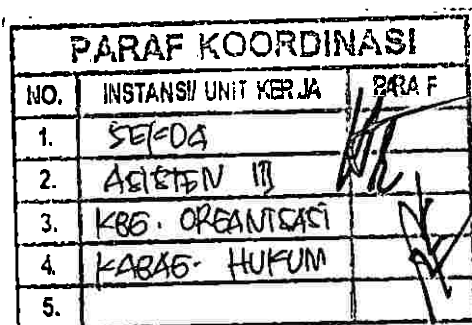 PARAF KOORDINASI
NO. INSTANSI/ UNIT KERJA PARAF
1. SEKDA
2. ASISTEN III
3. KBG. ORGANISASI
4. KABAG. HUKUM
5.